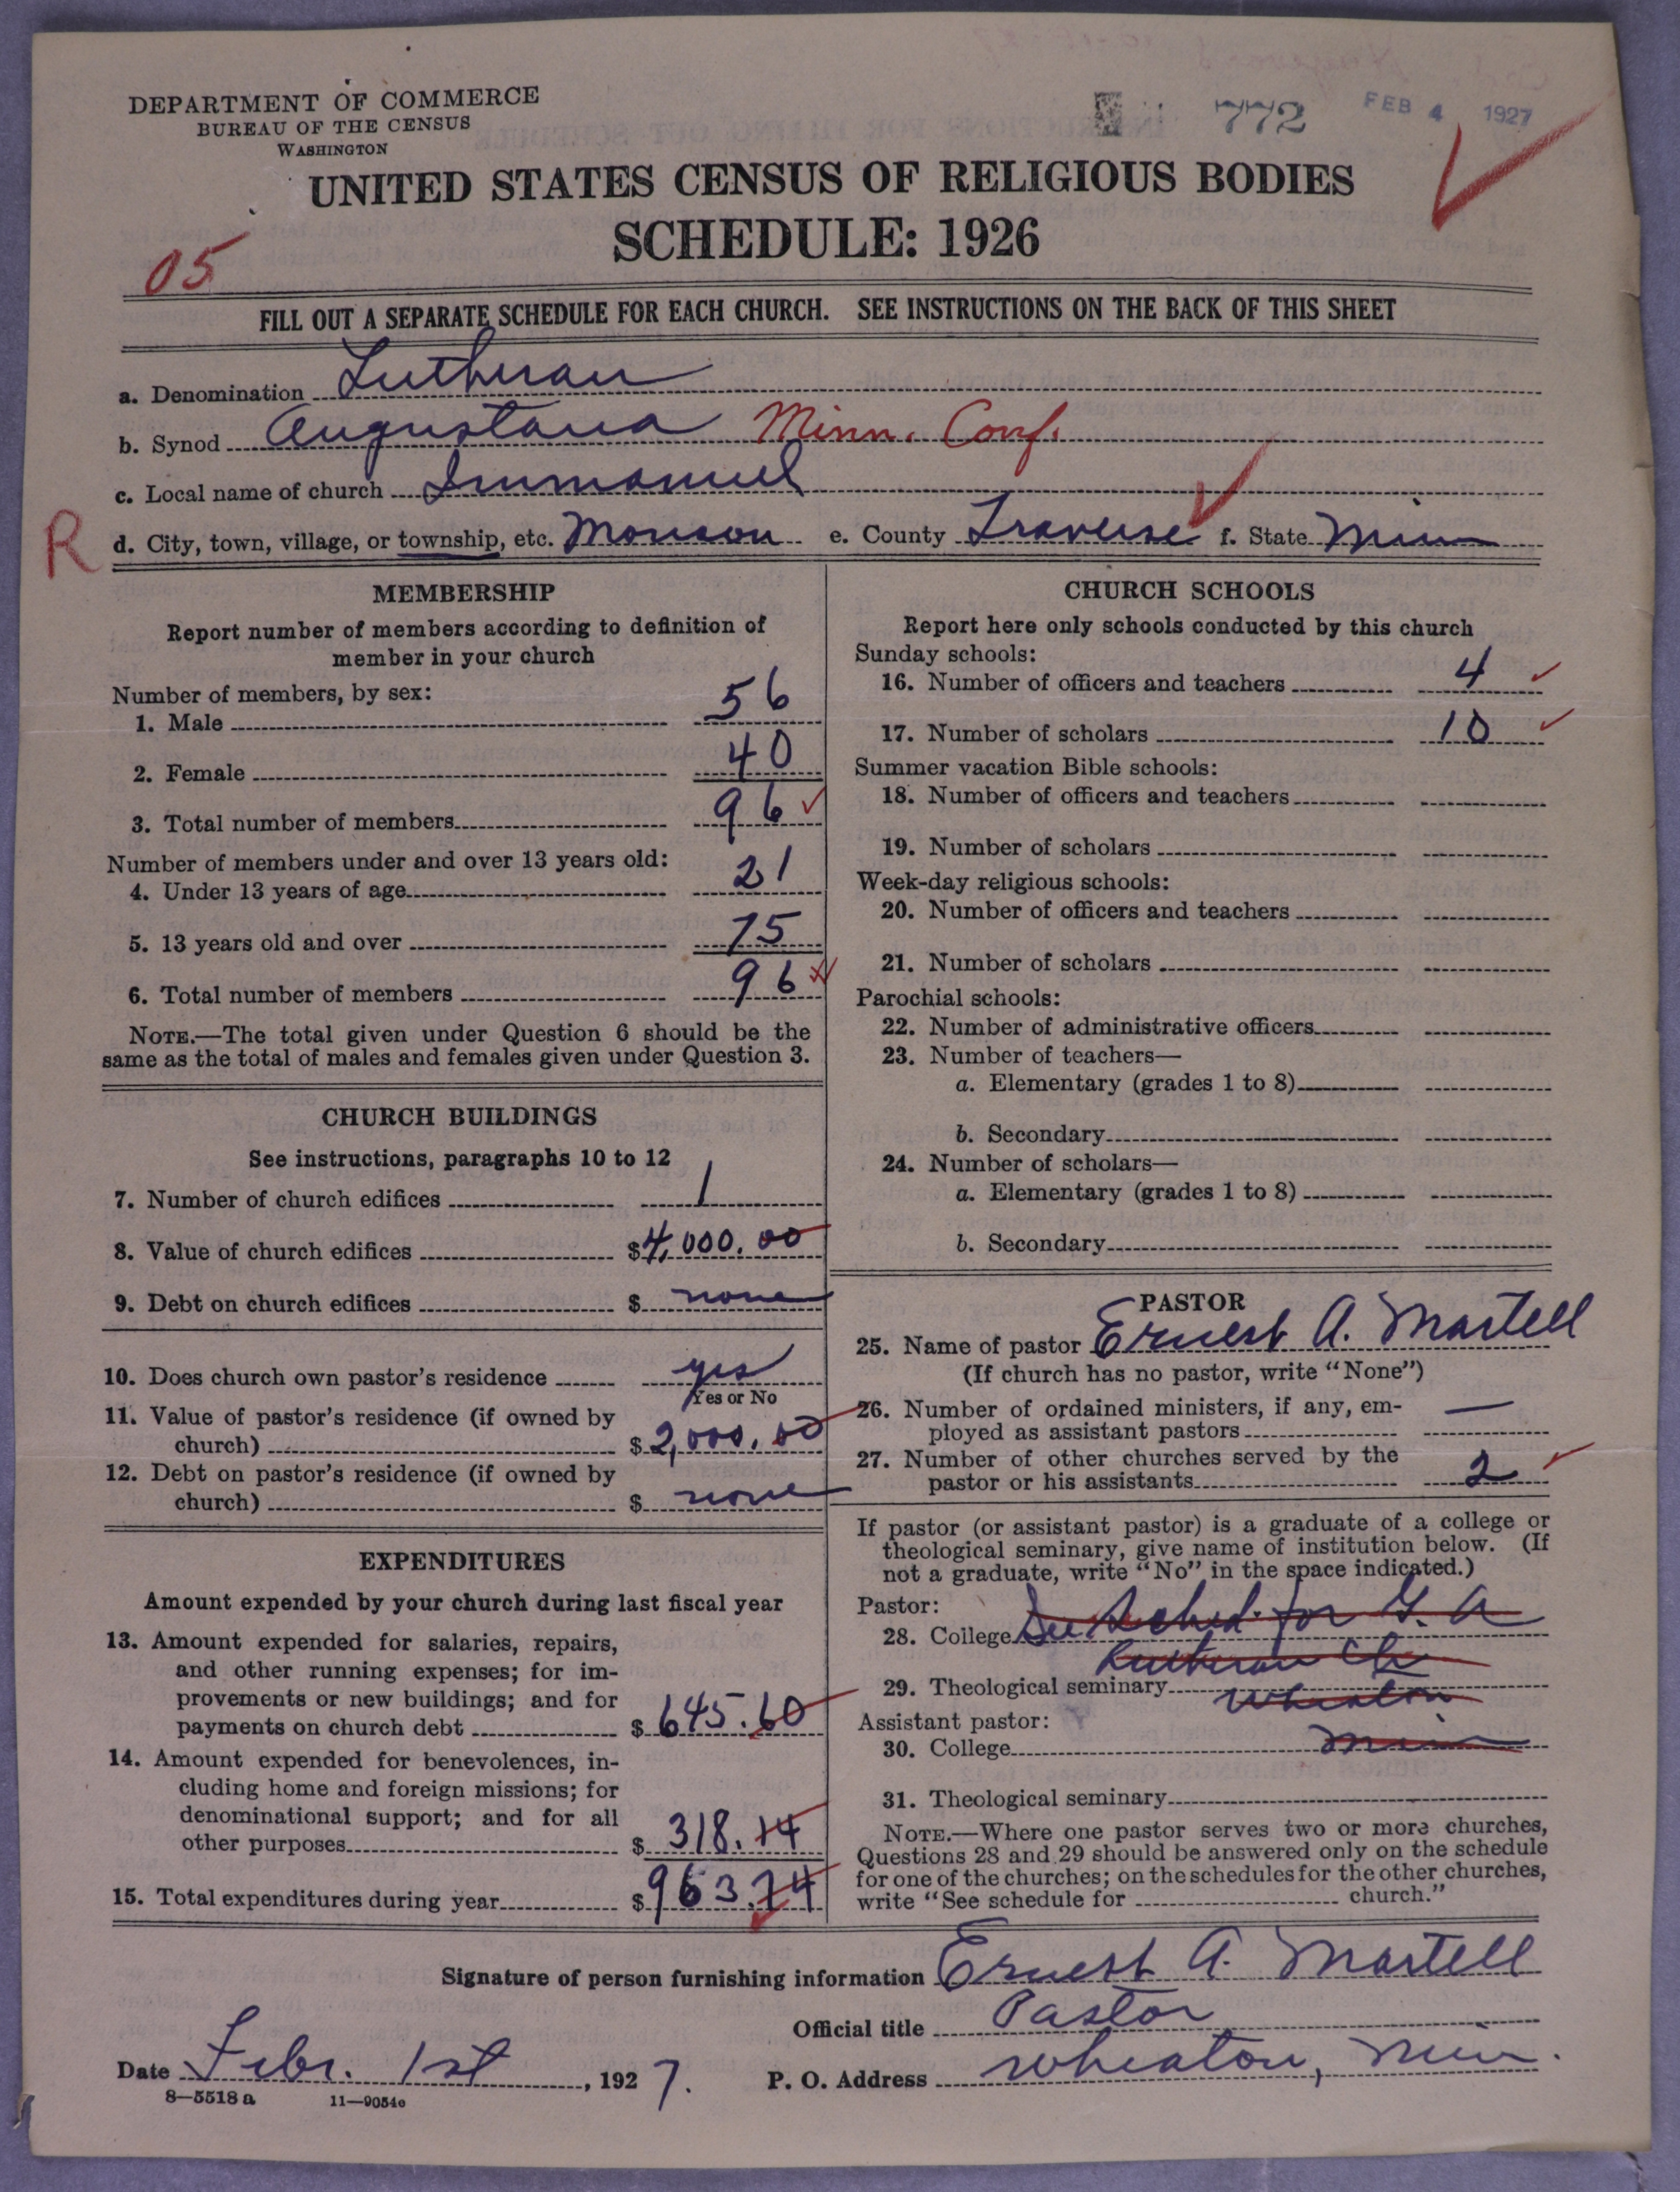 DEPARTMENT OF COMMERCE
BUREAU OF THE CENSUS
WASHINGTON
772
FEB 4 1927
UNITED STATES CENSUS OF RELIGIOUS BODIES
SCHEDULE: 1926
05
FILL OUT A SEPARATE SCHEDULE FOR EACH CHURCH. SEE INSTRUCTIONS ON THE BACK OF THIS SHEET
a. Denomination Lutheran
b. Synod Augustana Minn. Conf.
c. Local name of church Immanuel
R
d. City, town, village, or township, etc. Monson e. County Traverse f. State Minn
MEMBERSHIP
Report number of members according to definition of
member in your church
Number of members, by sex:
1. Male 56
2. Female 40
3. Total number of members 96
Number of members under and over 13 years old:
4. Under 13 years of age 21
5. 13 years old and over 75
6. Total number of members 96
NOTE.—The total given under Question 6 should be the
same as the total of males and females given under Question 3.
CHURCH BUILDINGS
See instructions, paragraphs 10 to 12
7. Number of church edifices 1
8. Value of church edifices $4,000.00
9. Debt on church edifices $ none
10. Does church own pastor's residence yes
Yes or No
11. Value of pastor's residence (if owned by
church) $2,000.00
12. Debt on pastor's residence (if owned by
church) $ none
EXPENDITURES
Amount expended by your church during last fiscal year
13. Amount expended for salaries, repairs,
and other running expenses; for im-
provements or new buildings; and for
payments on church debt $ 645.60
14. Amount expended for benevolences, in-
cluding home and foreign missions; for
denominational support; and for all
other purposes $ 318.14
15. Total expenditures during year $963.74
CHURCH SCHOOLS
Report here only schools conducted by this church
Sunday schools:
16. Number of officers and teachers 4
17. Number of scholars 10
Summer vacation Bible schools:
18. Number of officers and teachers
19. Number of scholars
Week-day religious schools:
20. Number of officers and teachers
21. Number of scholars
Parochial schools:
22. Number of administrative officers
23. Number of teachers—
a. Elementary (grades 1 to 8)
b. Secondary
24. Number of scholars—
a. Elementary (grades 1 to 8)
b. Secondary
PASTOR
25. Name of pastor Ernest A. Martell
(If church has no pastor, write "None")
26. Number of ordained ministers, if any, em-
ployed as assistant pastors —
27. Number of other churches served by the
pastor or his assistants 2
If pastor (or assistant pastor) is a graduate of a college or
theological seminary, give name of institution below. (If
not a graduate, write "No" in the space indicated.)
Pastor:
28. College See Sched. for G. A
Lutheran Ch
29. Theological seminary Wheaton
Assistant pastor:
30. College Minn
31. Theological seminary
NOTE.—Where one pastor serves two or more churches,
Questions 28 and 29 should be answered only on the schedule
for one of the churches; on the schedules for the other churches,
write "See schedule for church."
Signature of person furnishing information Ernest A. Martell
Official title Pastor
Date Febr. 1st, 1927. P. O. Address Wheaton, Minn.
8—5518 a 11—9054e